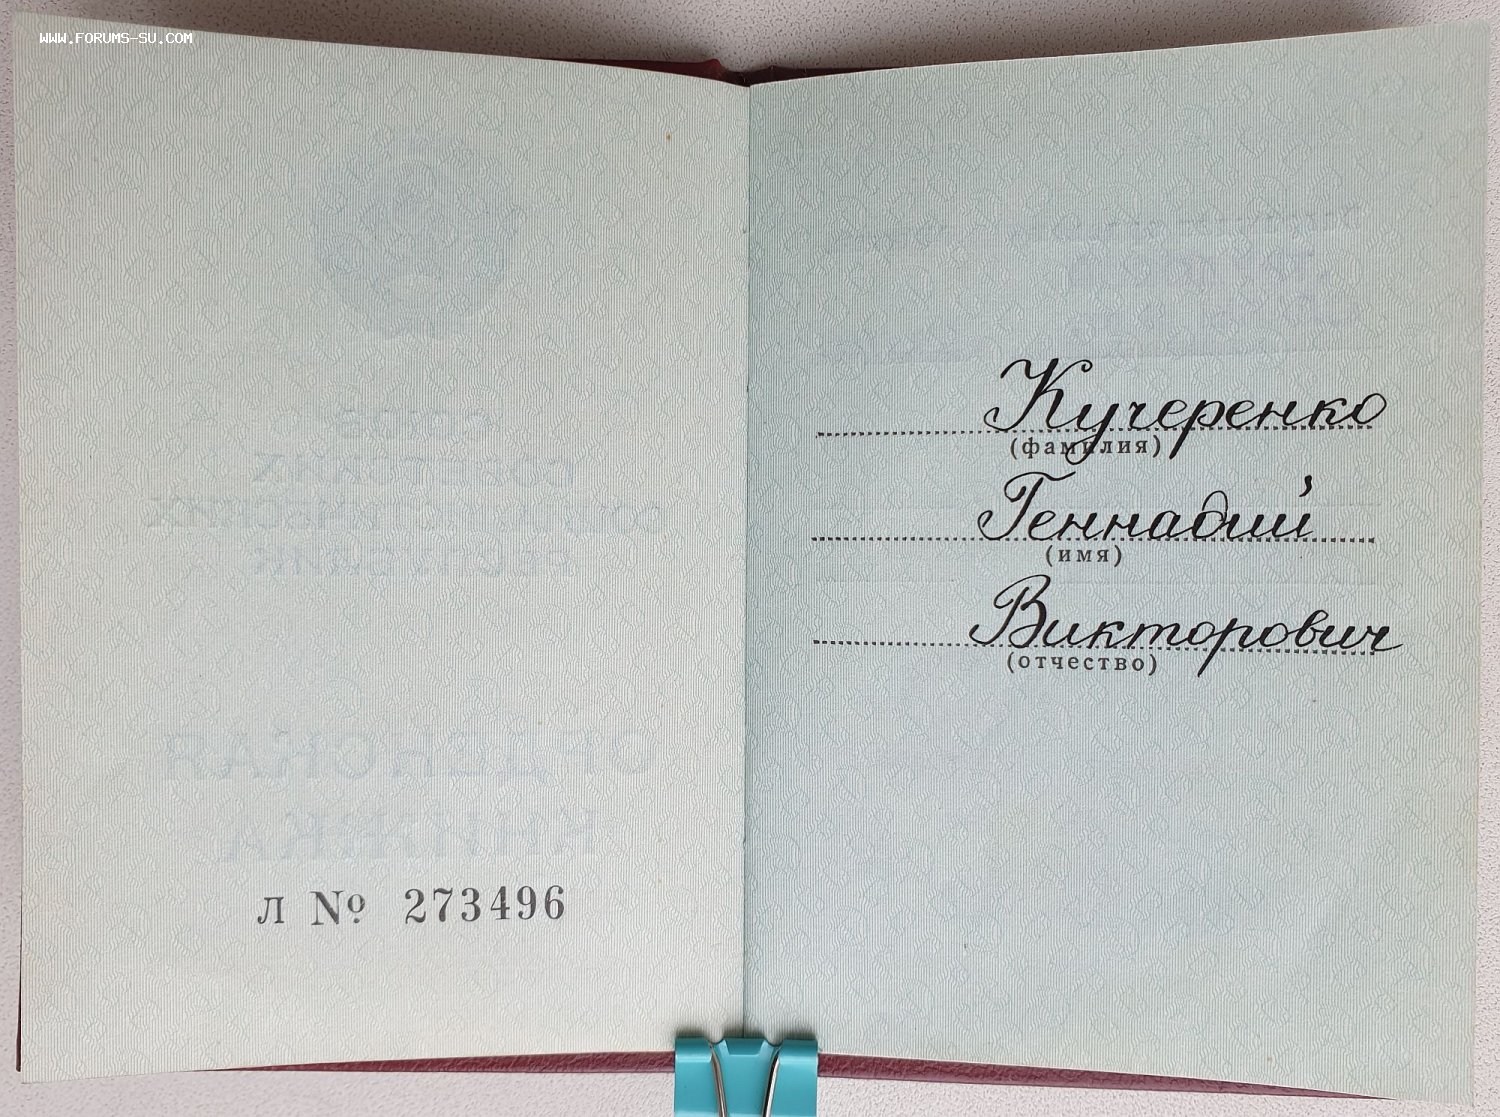 WWW.FORUMS-SU.COM
ОРДЕНСКАЯ
КНИЖКА
Л № 273496
Кучеренко
(фамилия)
Геннадий
(имя)
Викторович
(отчество)